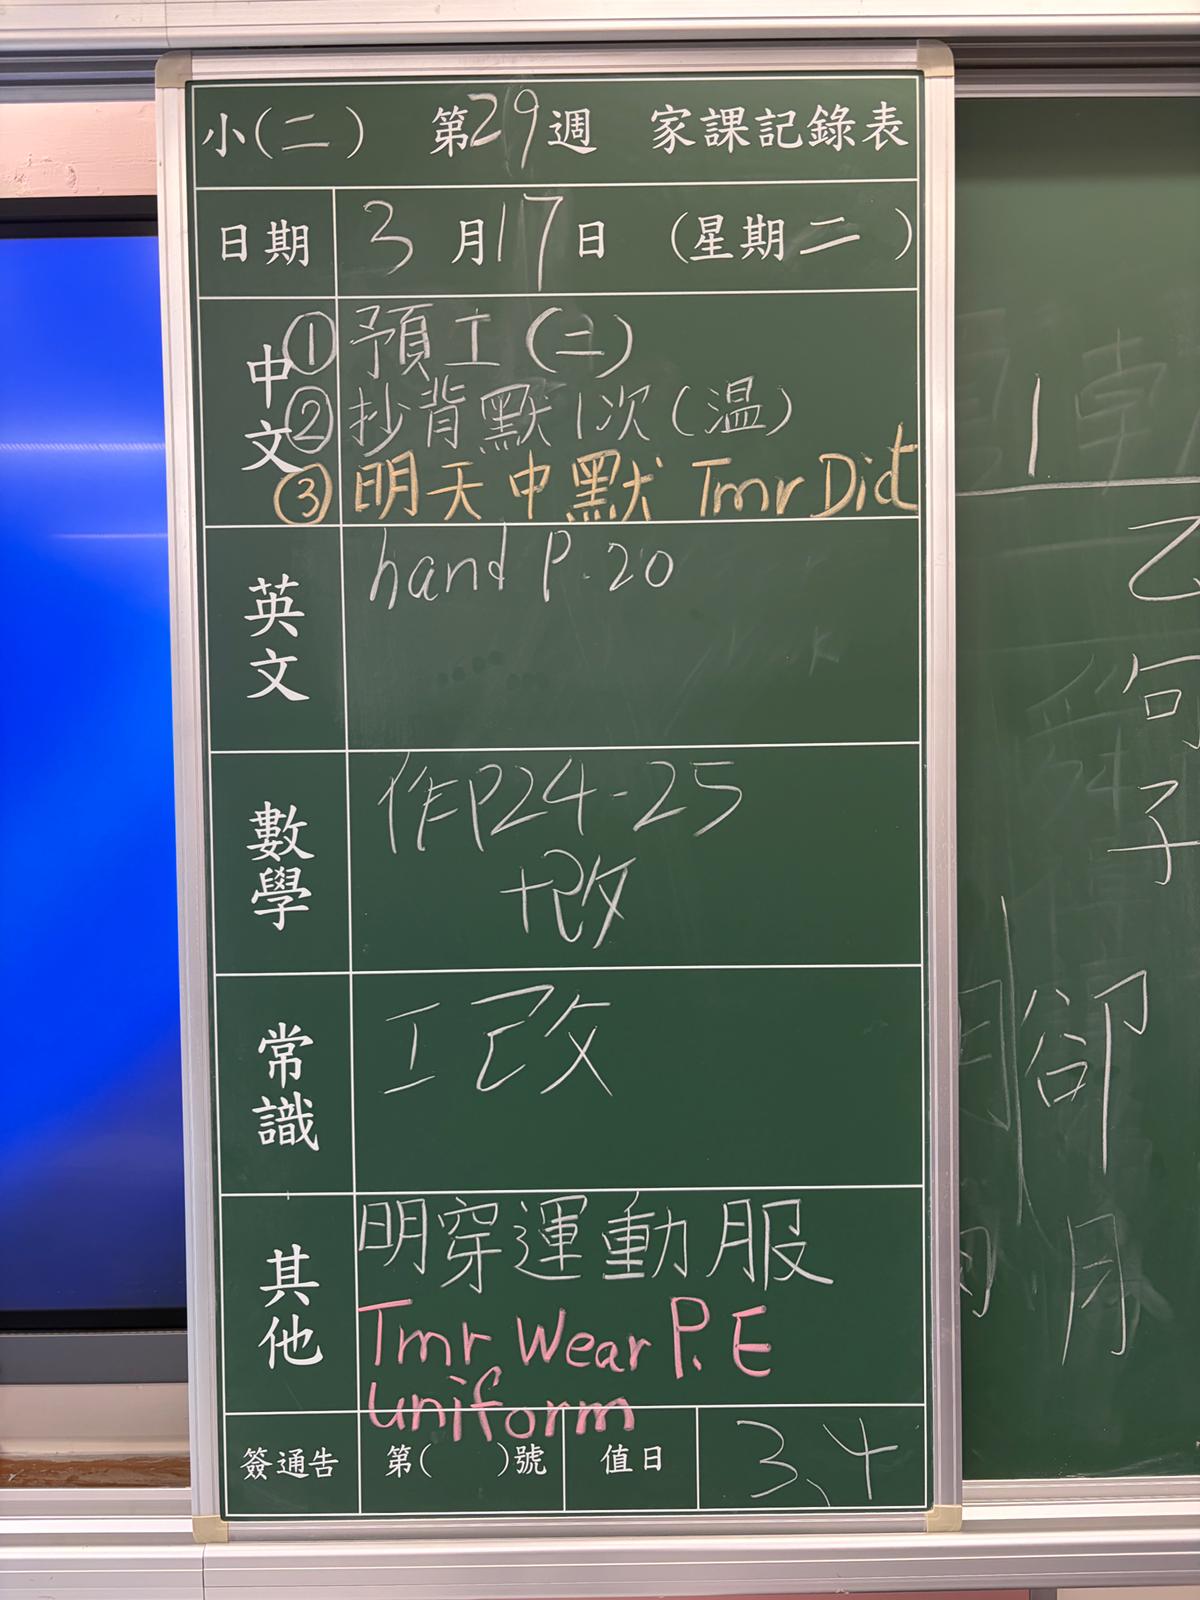 小(二) 第29週 家課記錄表
日期 3月17日 (星期二)
中文
①預工(二)
②抄背默1次(溫)
③明天中默 Tmr Dict
英文
hand P.20
數學
作P24-25
+改
常識
工改
其他
明穿運動服
Tmr Wear P.E
uniform
簽通告 第( )號 值日 3、4
1
乙
句
子
卻
月